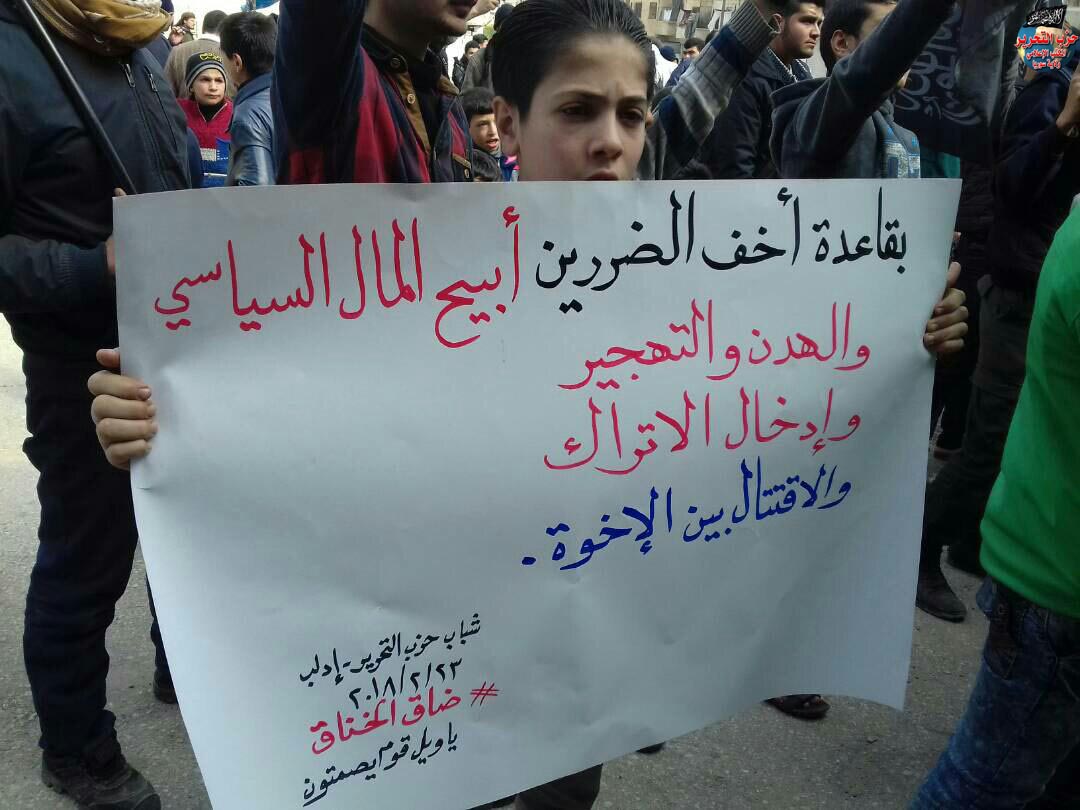 بقاعدة أخف الضررين أبيح المال السياسي
والهدن والتهجير
وإدخال الاتراك
والاقتتال بين الإخوة .
شباب حزب التحرير - إدلب
٢٠١٨/٢/٢٣
# ضاق الخناق
يا ويل قوم يصمتون
حزب التحرير
المكتب الإعلامي
ولاية سوريا